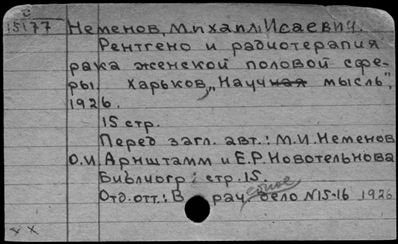 с
15177
Неменов, Михаил Исаевич.
Рентгено и радиотерапия
рака женской половой сфе-
ры. Харьков, "Научная мысль",
1926.
15 стр.
Перед загл. авт.: М.И. Неменов
О.И. Арнштамм и Е.Р. Новотельнова
Библиогр: стр. 15.
Отд. отт.: Врачебное дело N15-16 1926
х х